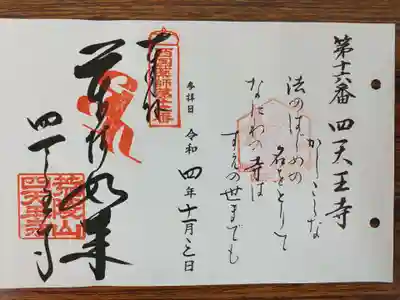 第十六番 四天王寺
かしこしな
法のはじめの
名をとりて
なにわの寺は
すえの世までも
参拝日 令和 四年十一月三日
奉拝
西国薬師第十六番
如来
四天王寺
荒陵山
四天王寺